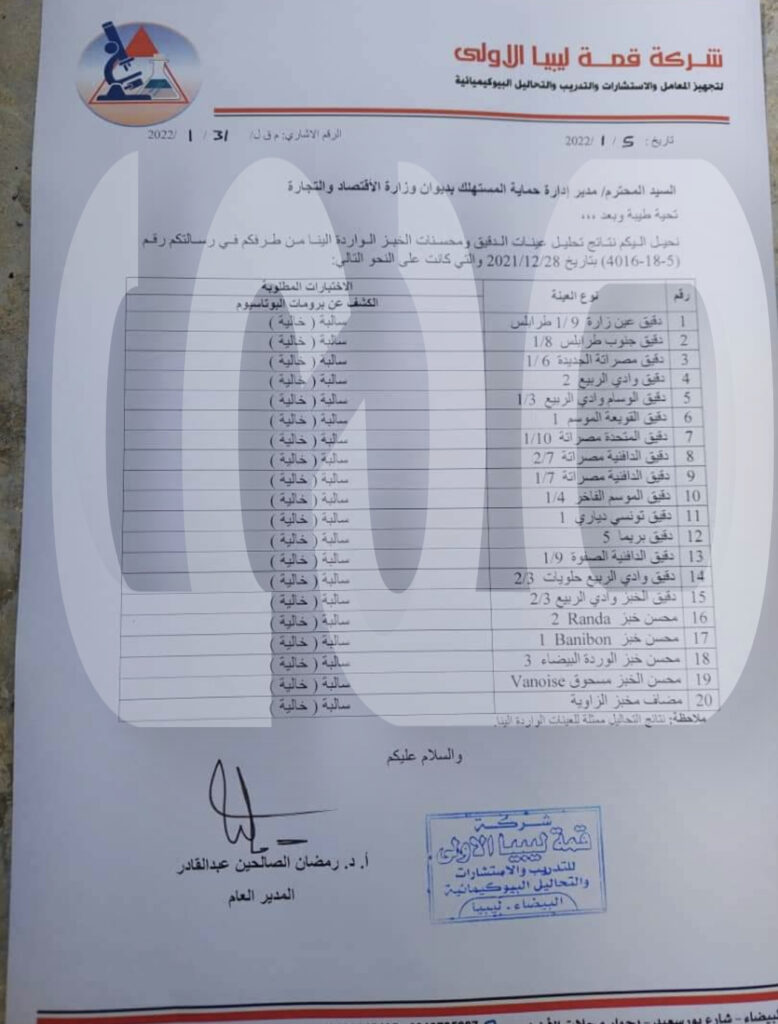 شركة قمة ليبيا الاولى
لتجهيز المعامل والاستشارات والتدريب والتحاليل البيوكيميائية
تاريخ: 5 / 1 /2022
الرقم الاشاري: م ق ل/ 31 / 1 /2022
السيد المحترم/ مدير إدارة حماية المستهلك بديوان وزارة الأقتصاد والتجارة
تحية طيبة وبعد ،،،
نحيل اليكم نتائج تحليل عينات الدقيق ومحسنات الخبز الواردة الينا من طرفكم في رسالتكم رقم
(5-18-4016) بتاريخ 2021/12/28 والتي كانت على النحو التالي:
رقم نوع العينة الاختبارات المطلوبة
الكشف عن برومات البوتاسيوم
1 دقيق عين زارة 1/9 طرابلس سالبة ( خالية )
2 دقيق جنوب طرابلس 1/8 سالبة ( خالية )
3 دقيق مصراتة الجديدة 1/6 سالبة ( خالية )
4 دقيق وادي الربيع 2 سالبة ( خالية )
5 دقيق الوسام وادي الربيع 1/3 سالبة ( خالية )
6 دقيق القويعة الموسم 1 سالبة ( خالية )
7 دقيق المتحدة مصراتة 1/10 سالبة ( خالية )
8 دقيق الدافنية مصراتة 2/7 سالبة ( خالية )
9 دقيق الدافنية مصراتة 1/7 سالبة ( خالية )
10 دقيق الموسم الفاخر 1/4 سالبة ( خالية )
11 دقيق تونسي دياري 1 سالبة ( خالية )
12 دقيق بريما 5 سالبة ( خالية )
13 دقيق الدافنية الصفوة 1/9 سالبة ( خالية )
14 دقيق وادي الربيع حلويات 2/3 سالبة ( خالية )
15 دقيق الخبز وادي الربيع 2/3 سالبة ( خالية )
16 محسن خبز Randa 2 سالبة ( خالية )
17 محسن خبز Banibon 1 سالبة ( خالية )
18 محسن خبز الوردة البيضاء 3 سالبة ( خالية )
19 محسن الخبز مسحوق Vanoise سالبة ( خالية )
20 مضاف مخبز الزاوية سالبة ( خالية )
ملاحظة: نتائج التحاليل ممثلة للعينات الواردة الينا.
والسلام عليكم
أ. د. رمضان الصالحين عبدالقادر
المدير العام
شركة
قمة ليبيا الاولى
للتدريب والاستشارات
والتحاليل البيوكيميائية
البيضاء - ليبيا